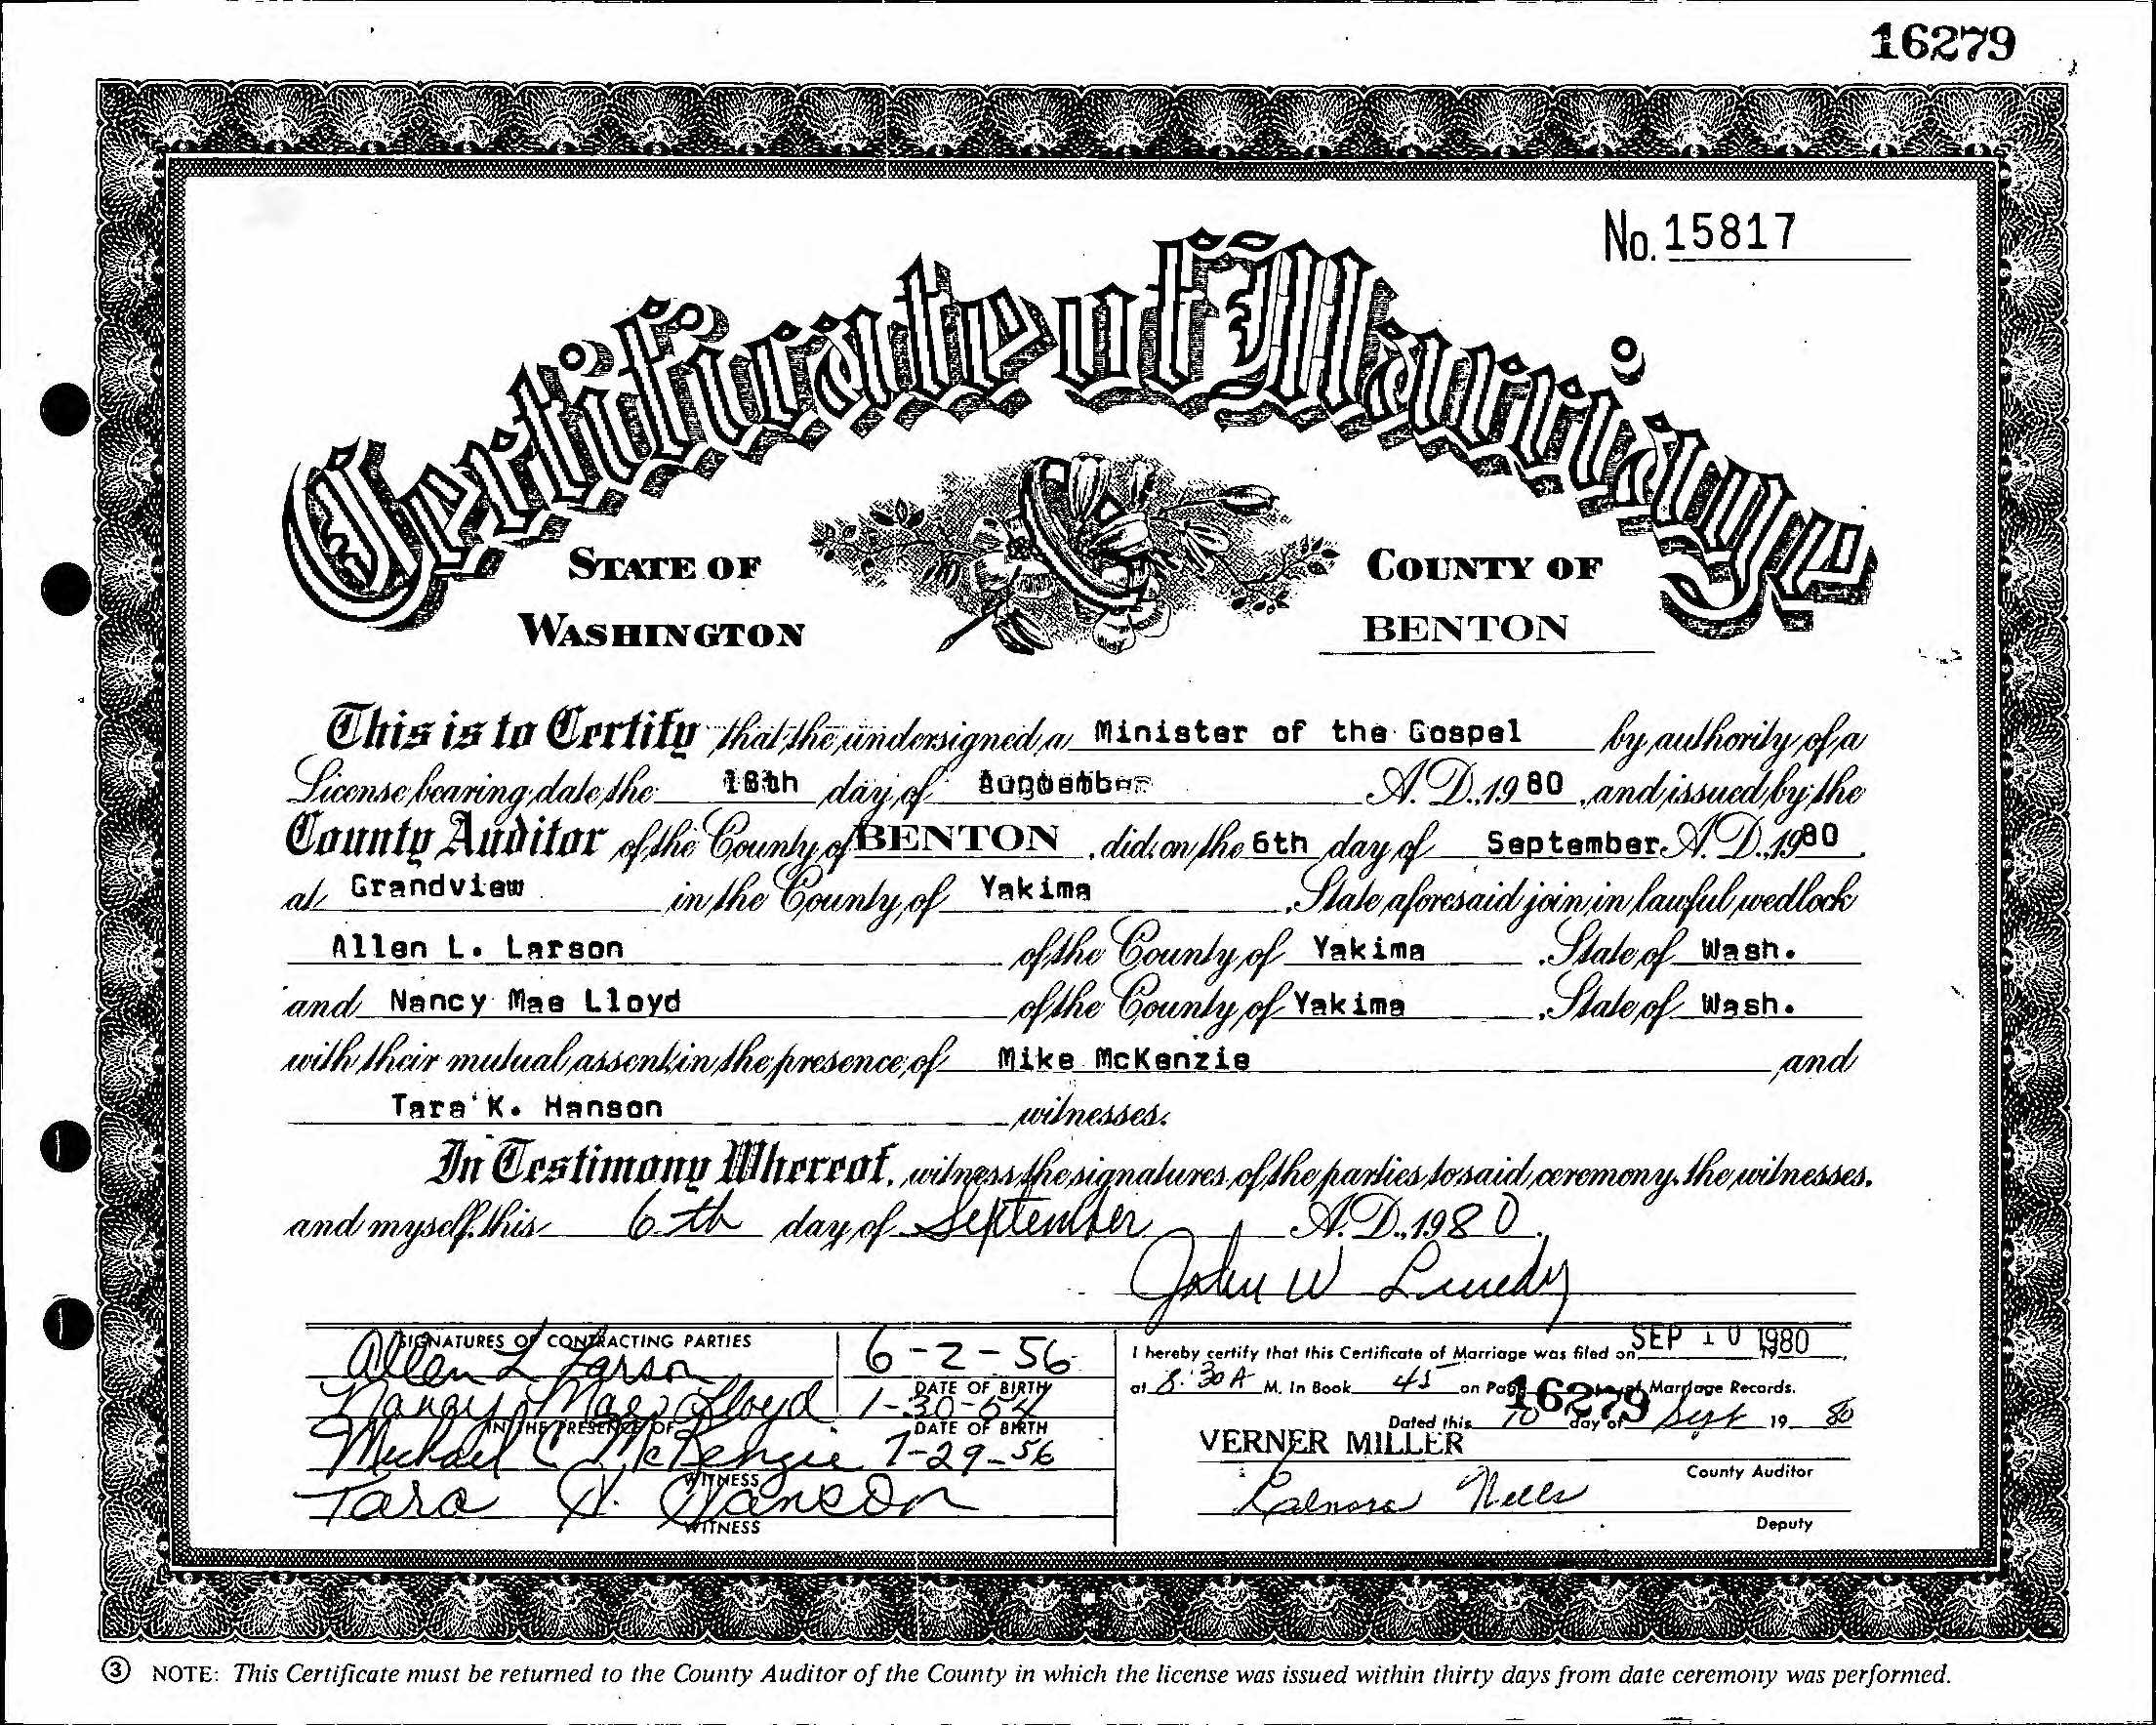 16279
No. 15817
Certificate of Marriage
STATE OF
WASHINGTON
COUNTY OF
BENTON
This is to Certify that the undersigned, a Minister of the Gospel by authority of a
License bearing date the 18th day of A. D. 1980, and issued by the
County Auditor of the County of BENTON, did on the 6th day of September A. D. 1980,
at Grandview in the County of Yakima, State aforesaid join in lawful wedlock
Allen L. Larson of the County of Yakima, State of Wash.
and Nancy Mae Lloyd of the County of Yakima, State of Wash.
with their mutual assent in the presence of Mike McKenzie and
Tara K. Hanson witnesses.
In Testimony Whereof, witness the signatures of the parties to said ceremony, the witnesses,
and myself, this 6th day of September A. D., 1980.
John W Lundy
SIGNATURES OF CONTRACTING PARTIES
Allen L Larson 6-2-56
DATE OF BIRTH
Nancy Mae Lloyd 1-30-
IN THE PRESENCE OF DATE OF BIRTH
Michael C. McKenzie 7-29-56
WITNESS
Tara K. Hanson
WITNESS
I hereby certify that this Certificate of Marriage was filed on SEP 10 1980,
at 8:30 A M. In Book 45 on Page 16279 of Marriage Records.
Dated this 10 day of Sept 19 80
VERNER MILLER
County Auditor
Deputy
③ NOTE: This Certificate must be returned to the County Auditor of the County in which the license was issued within thirty days from date ceremony was performed.